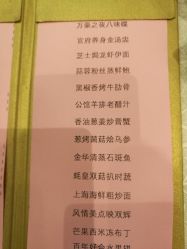 万豪之夜八味碟
官府养身金汤盅
芝士焗龙虾伊面
蒜蓉粉丝蒸鲜鲍
黑椒香烤牛肋骨
公馆羊排老醋汁
香油葱姜炒膏蟹
葱烤菌菇烩乌参
金华清蒸石斑鱼
蚝皇双菇扒时蔬
上海海鲜粗炒面
风情美点映双辉
芒果西米冻布丁
百年好合水果盘